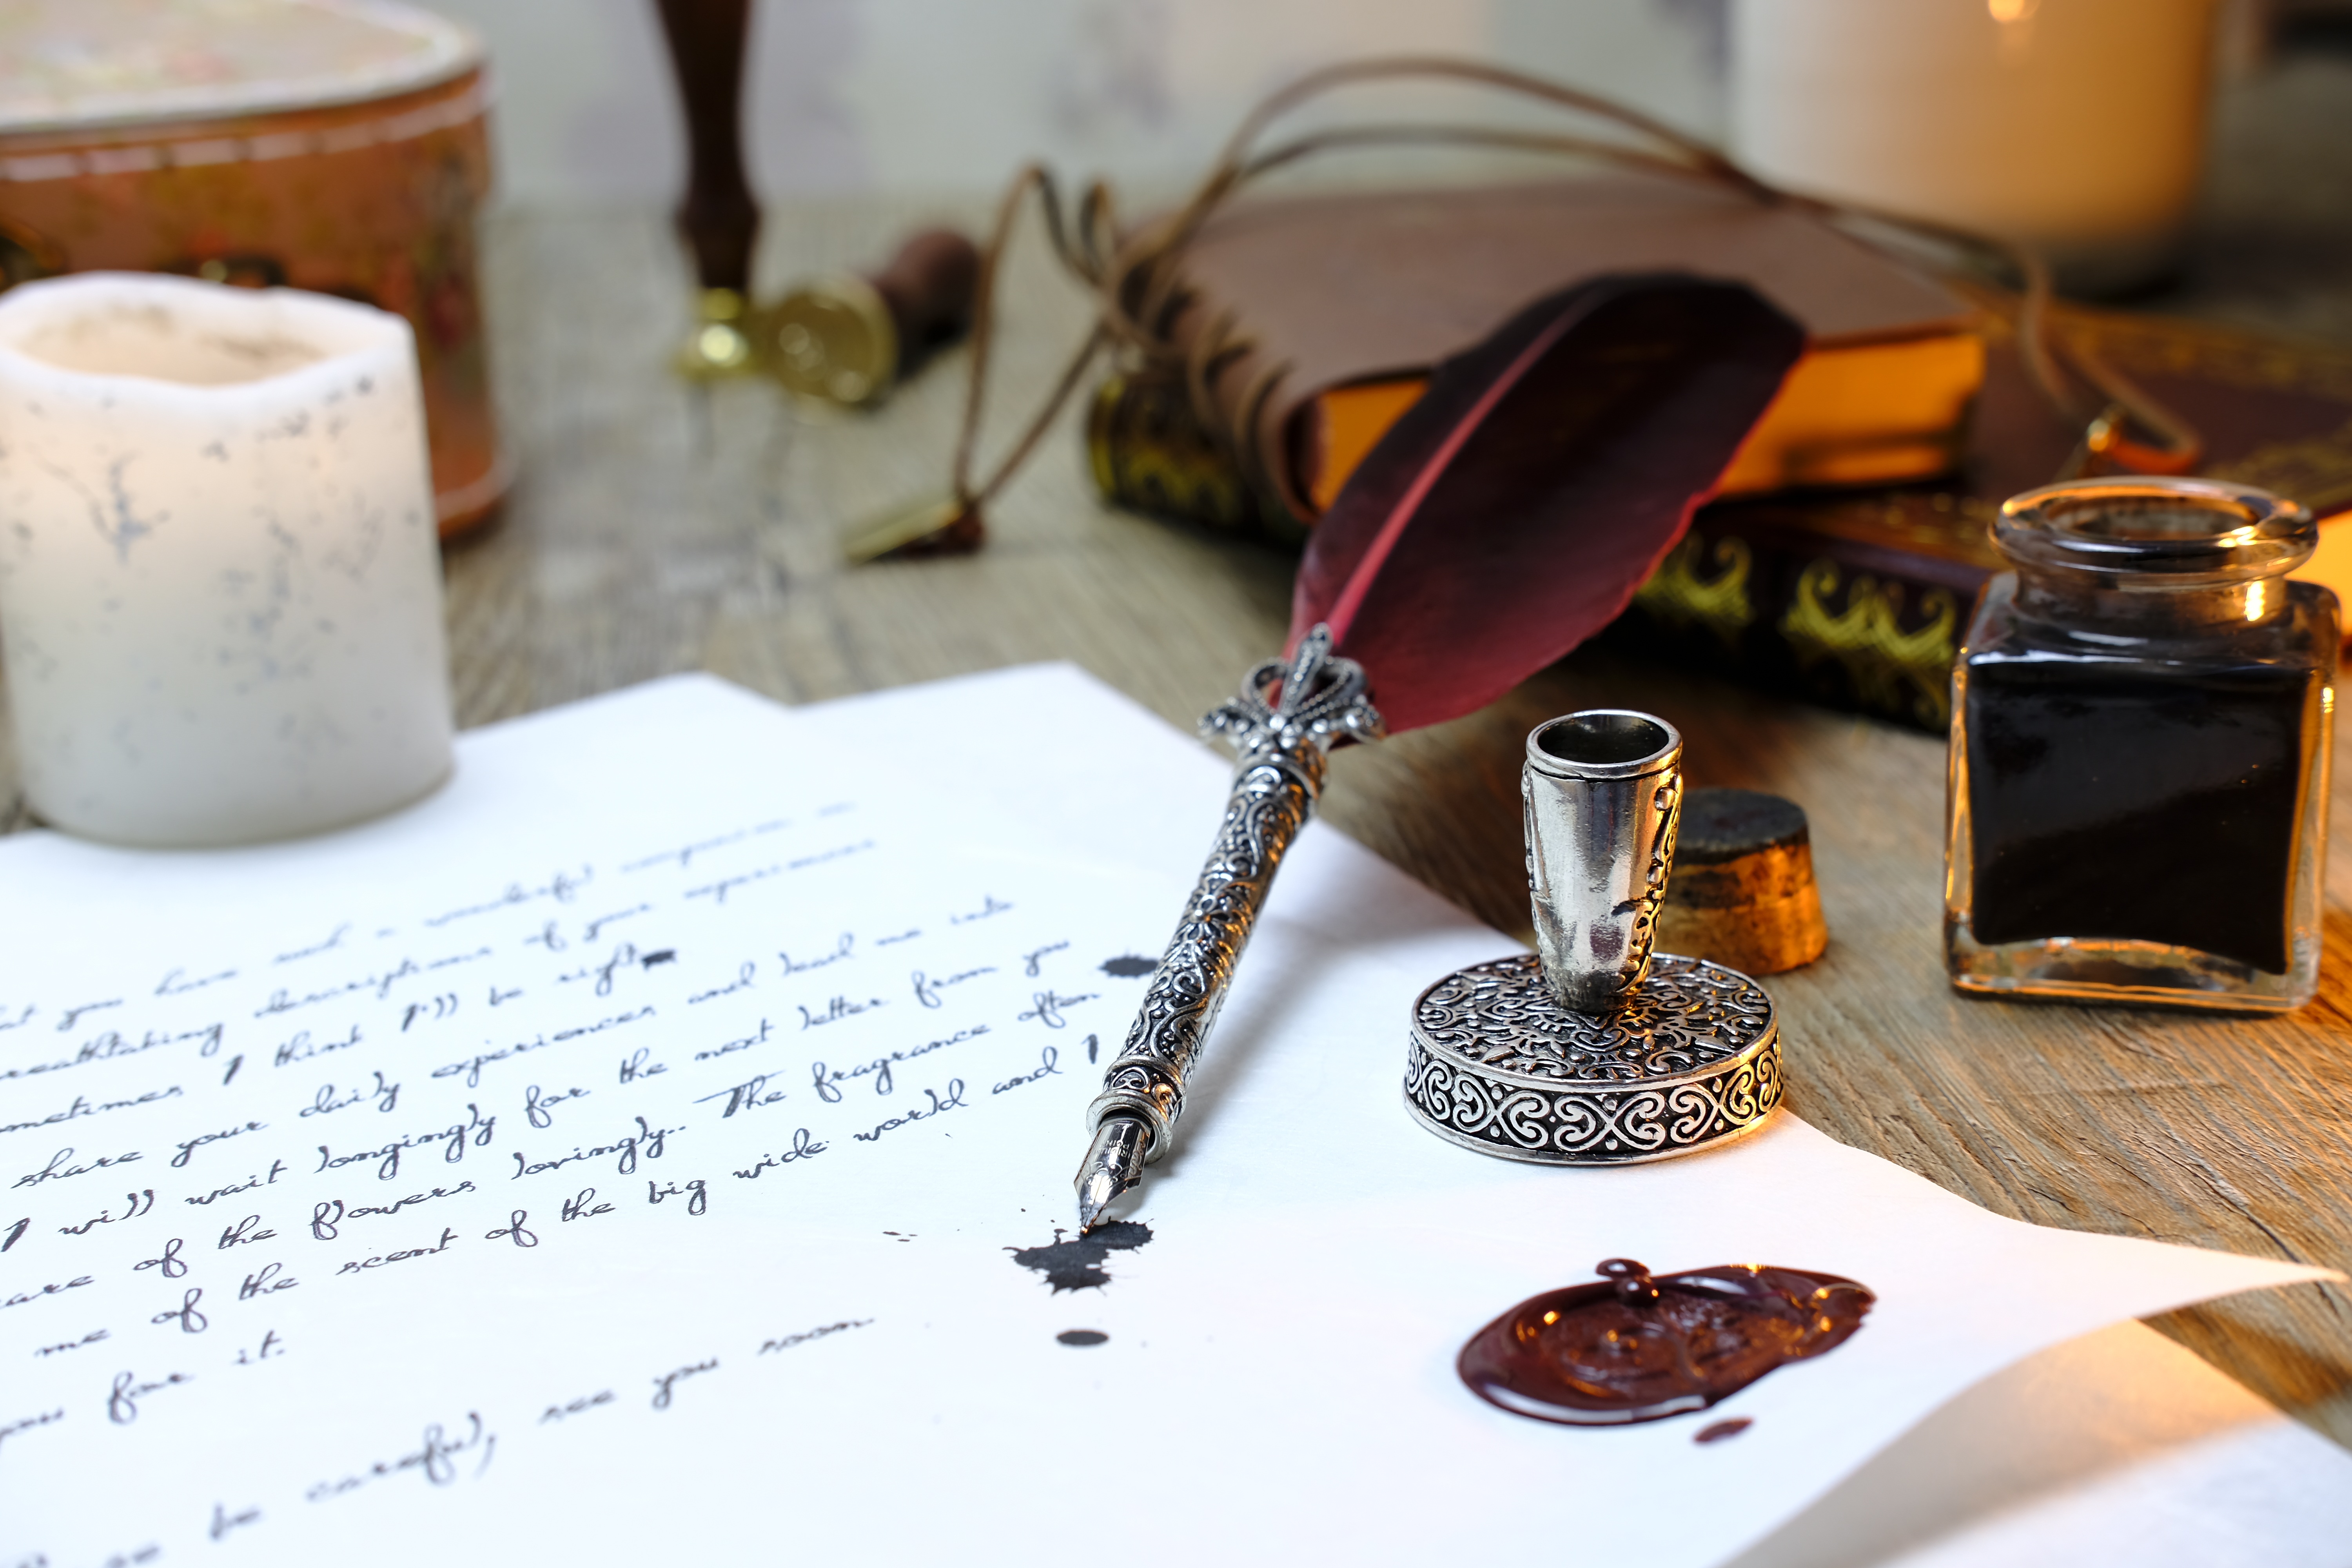 you have such a wonderful
breathtaking descriptions of your experiences
sometimes I think I'll be right
share your daily experiences and lead me into
I will wait longingly for the next letter from you
care of the flowers lovingly.. The fragrance often
me of the scent of the big wide world and I
you for it.
be careful, see you soon